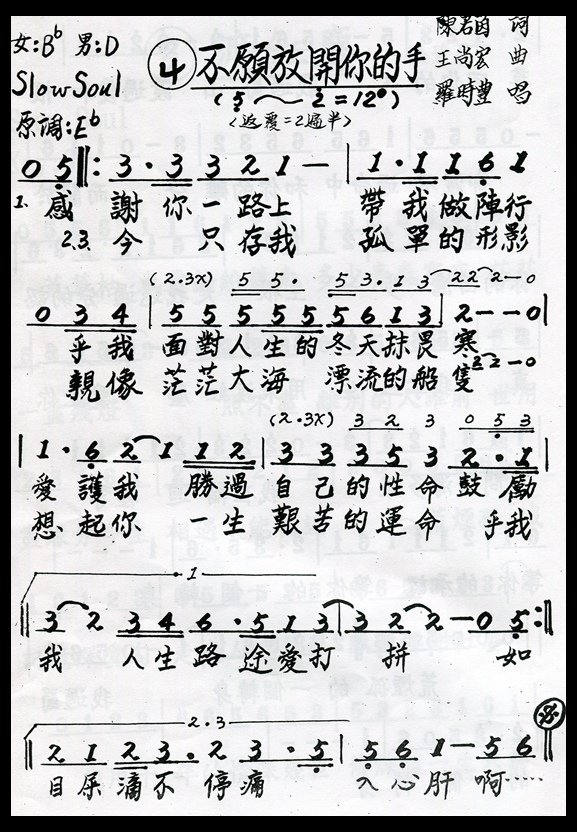 女:Bb 男:D
④ 不願放開你的手
陳君自 詞
王尚宏 曲
羅時豐 唱
Slow Soul
(5～2=12°)
(返覆=2遍半)
原調:Eb
0 5 ‖: 3 · 3 3 2 1 — | 1 · 1 1 6 1
1. 感 謝 你 一 路 上 帶 我 做 陣 行
2.3. 今 只 存 我 孤 單 的 形 影
(2.3x) 5 5 · 5 3 · 1 3 2 2 2 — 0
0 3 4 | 5 5 5 5 5 5 6 1 3 | 2 — — 0 |
乎 我 面 對 人 生 的 冬 天 抹 畏 寒
3 2 — 0
親 像 茫 茫 大 海 漂 流 的 船 隻
(2.3x) 3 2 3 0 5 3
| 1 · 6 2 1 1 2 | 3 3 3 5 3 2 · 1 |
愛 護 我 勝 過 自 己 的 性 命 鼓 勵
想 起 你 一 生 艱 苦 的 運 命 乎 我
1
3 2 3 4 6 · 5 1 3 | 3 2 2 — 0 5 :‖
我 人 生 路 途 愛 打 拼 如
2.3
‖ 2 1 2 3 · 2 3 · 5 | 5 6 1 — 5 6 ‖
目 屎 滴 不 停 痛 入 心 肝 啊……